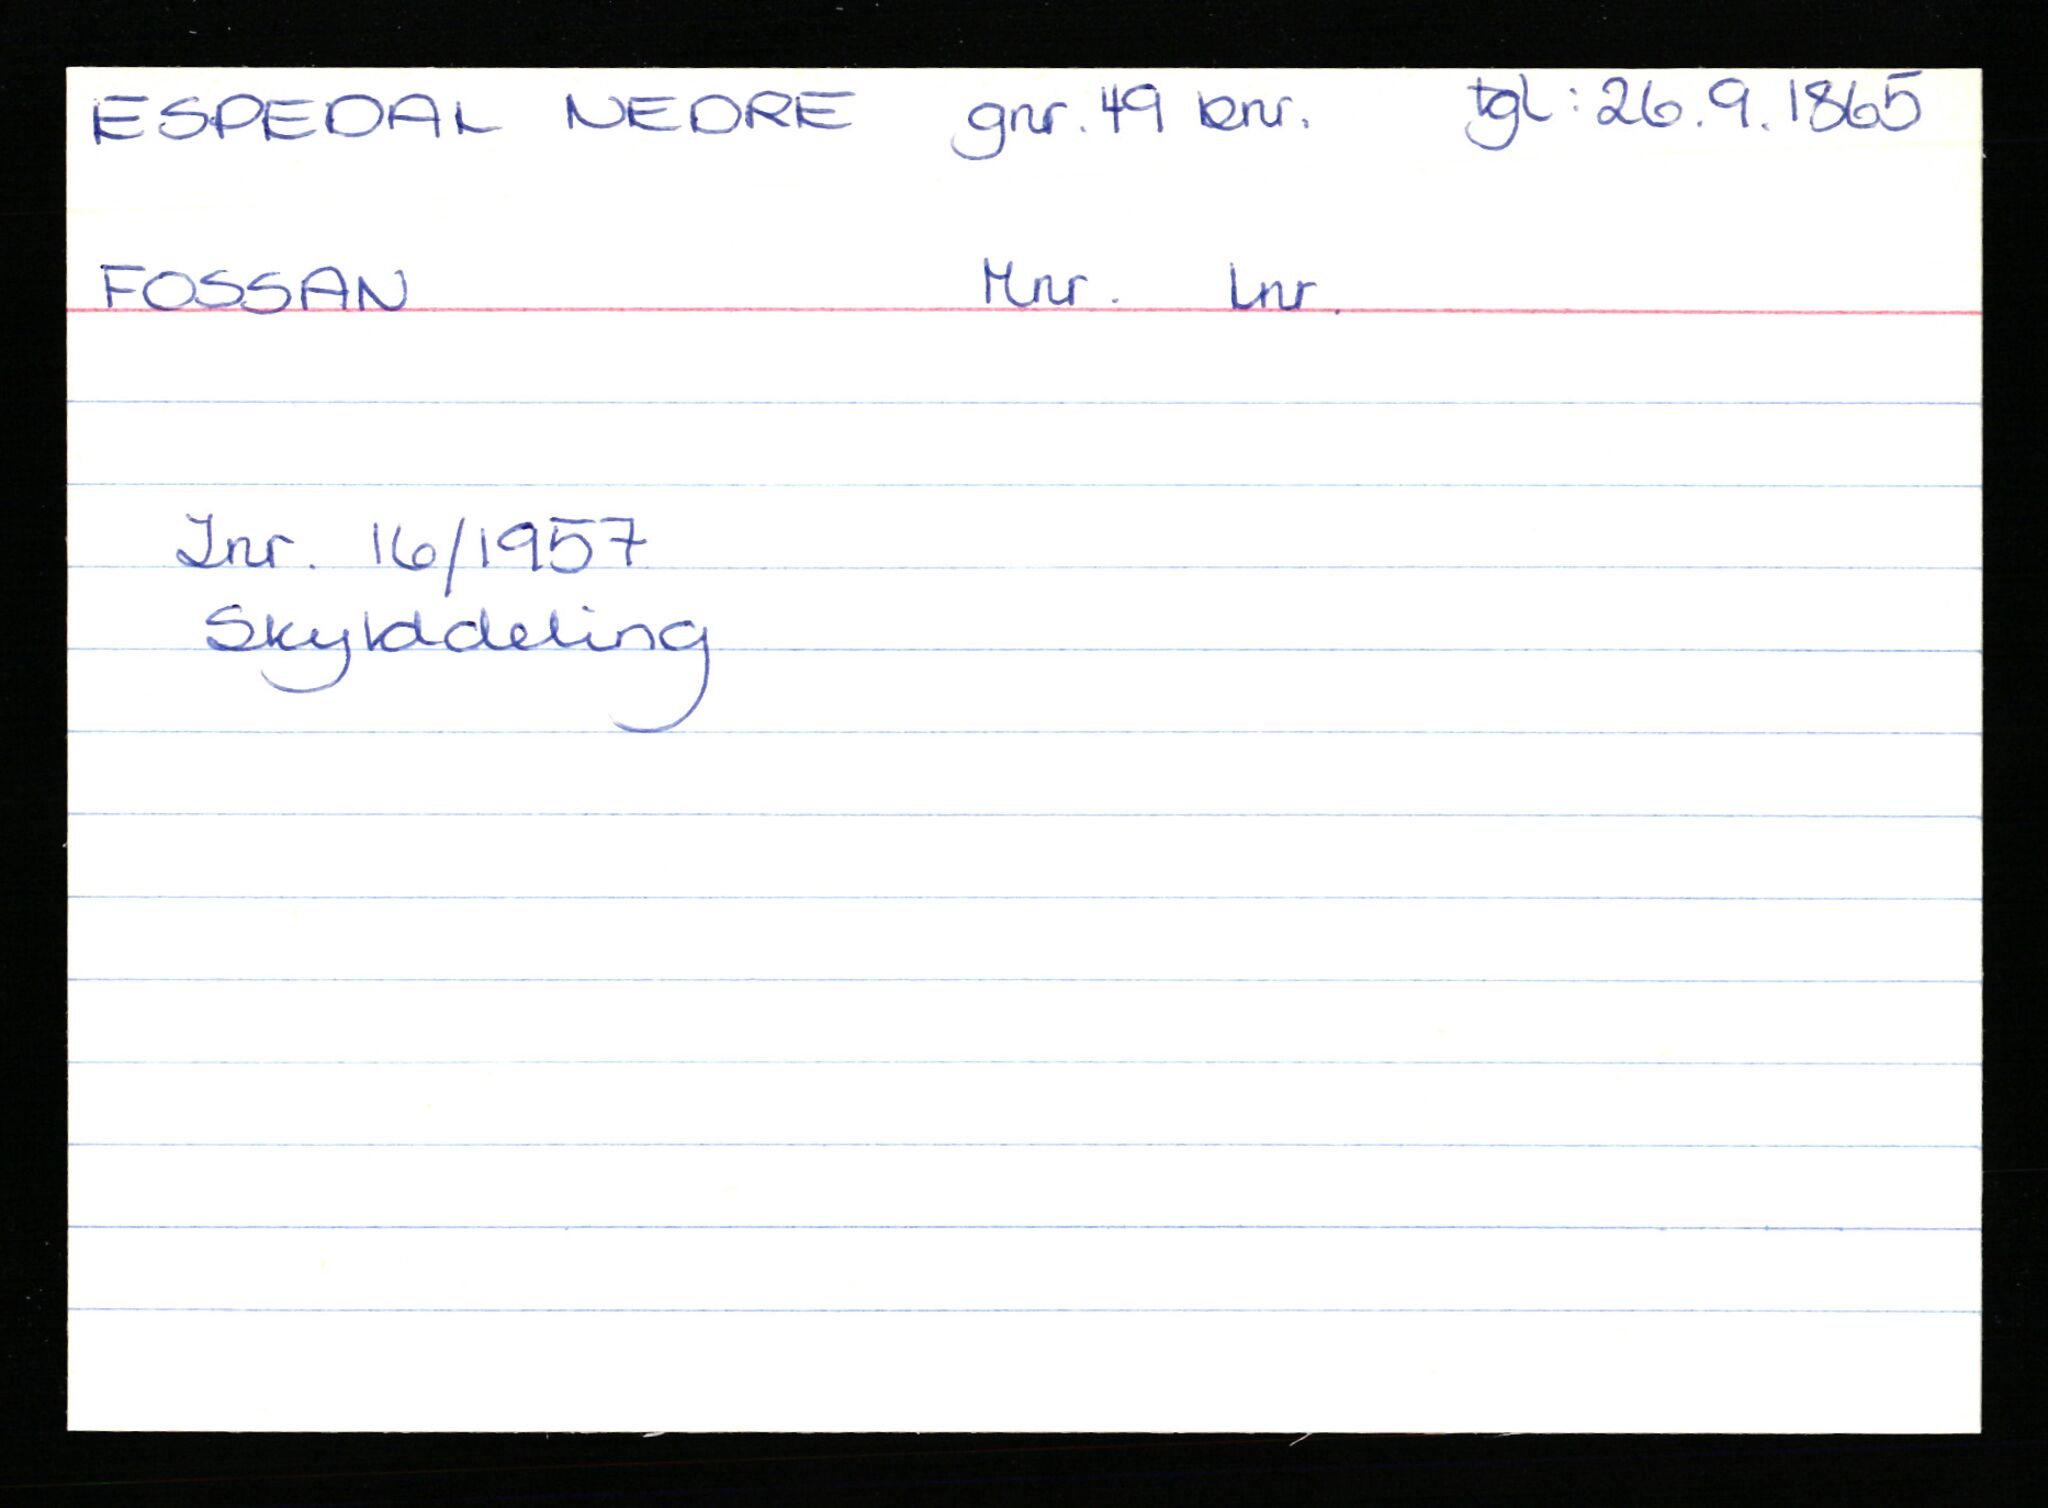 ESPEDAL NEDRE gnr. 49 bnr. tgl: 26.9.1865
FOSSAN Mnr. Lnr.
Jnr. 16/1957
Skylddeling